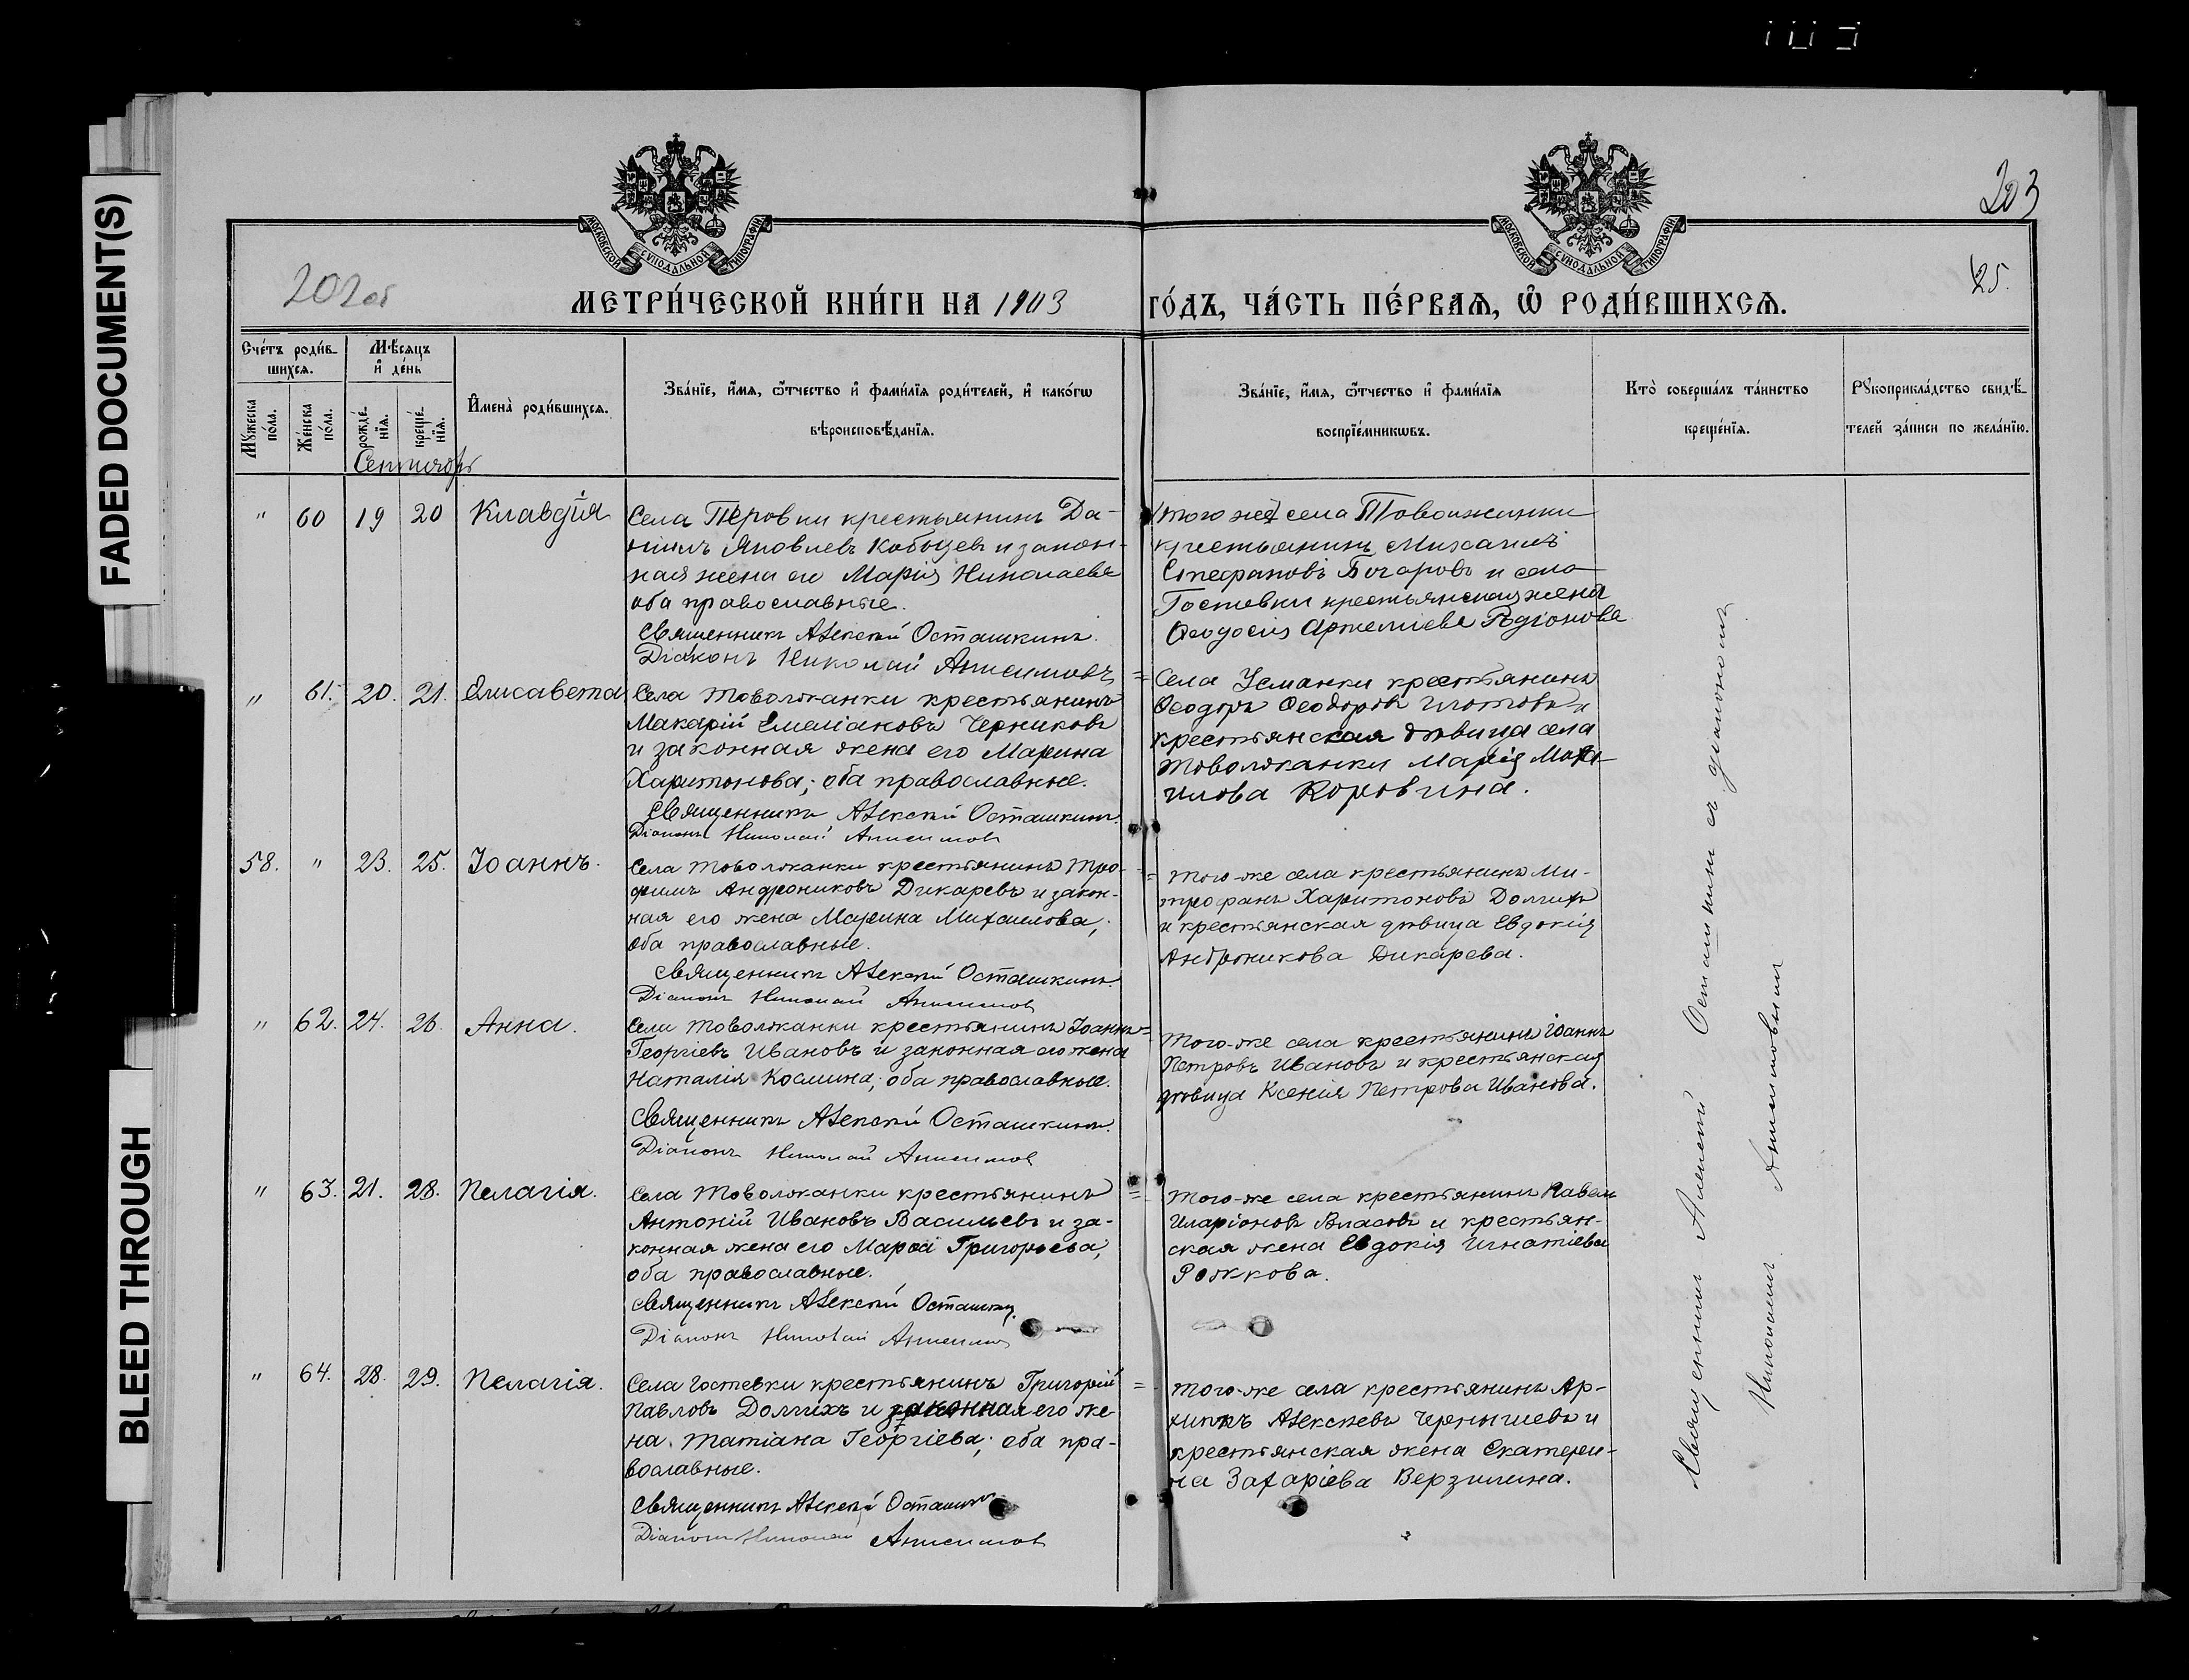 FADED DOCUMENT(S)
BLEED THROUGH
203
202об
25.
МОСКОВСКОЙ СѴНОДАЛЬНОЙ ТИПОГРАФІИ
МОСКОВСКОЙ СѴНОДАЛЬНОЙ ТИПОГРАФІИ
МЕТРИ́ЧЕСКОЙ КНИ́ГИ НА 1903 ГО́ДЪ, ЧА́СТЬ ПЕ́РВАѦ, Ѽ РОДИ́ВШИХСѦ.
Сче́тъ роди́в-
шихсѧ.
Мѣ́сяцъ
и҆ де́нь
Мꙋ́жеска
по́ла.
Же́нска
по́ла.
рожде́-
нїѧ.
креще́-
нїѧ.
И҆мена̀ роди́вшихсѧ.
Зва́нїе, и҆́мѧ, ѻ҆́тчество и҆ фами́лїѧ роди́телей, и҆ како́гѡ
вѣроисповѣ́данїѧ.
Зва́нїе, и҆́мѧ, ѻ҆́тчество и҆ фами́лїѧ
воспрїе́мникѡвъ.
Кто̀ соверша́лъ та́инство
креще́нїѧ.
Рꙋкоприкла́дство свидѣ́-
телей за́писи по жела́нїю.
Сентябрь
" 60 19 20 Клавдія
Села Перовки крестьянинъ Да-
ніилъ Яковлевъ Кобыцев и закон-
ная жена его Марія Николаева
оба православные.
Священникъ Алексѣй Осташкинъ.
Діаконъ Николай Анисимовъ
того же села Товолжанки
крестьянинъ Михаилъ
Стефановъ Бочаровъ и села
Гостевки крестьянская жена
Ѳеодосія Артеміева Родіонова
" 61. 20. 21. Елисавета
Села Товолжанки крестьянинъ
Макарій Емеліановъ Черниковъ
и законная жена его Марина
Харитонова; оба православные.
Священникъ Алексѣй Осташкинъ.
Діаконъ Николай Анисимовъ
= Села Усманки крестьянинъ
Ѳеодоръ Ѳеодоровъ Изотовъ и
крестьянская дѣвица села
Товолжанки Марія Миха-
илова Коровина.
58. " 23. 25. Іоаннъ.
Села Товолжанки крестьянинъ Тро-
фимъ Андрониковъ Дикаревъ и закон-
ная его жена Марина Михаилова;
оба православные.
Священникъ Алексѣй Осташкинъ.
Діаконъ Николай Анисимовъ
= того-же села крестьянинъ Ми-
трофанъ Харитоновъ Долгихъ
и крестьянская дѣвица Евдокія
Андроникова Дикарева.
" 62. 24. 26. Анна.
Села Товолжанки крестьянинъ Іоаннъ
Георгіевъ Ивановъ и законная его жена
Наталія Космина; оба православные.
Священникъ Алексѣй Осташкинъ.
Діаконъ Николай Анисимовъ
= того-же села крестьянинъ Іоаннъ
Петровъ Ивановъ и крестьянская
дѣвица Ксенія Петрова Иванова.
" 63. 21. 28. Пелагія.
Села Товолжанки крестьянинъ
Антоній Ивановъ Васильевъ и за-
конная жена его Марѳа Григорьева,
оба православные.
Священникъ Алексѣй Осташкинъ.
Діаконъ Николай Анисимовъ
= того-же села крестьянинъ Павелъ
Иларіоновъ Власовъ и крестьян-
ская жена Евдокія Игнатіева
Рожкова.
" 64. 28. 29. Пелагія.
Села Гостевки крестьянинъ Григорій
Павловъ Долгихъ и законная его же-
на Татіана Георгіева; оба пра-
вославные.
Священникъ Алексѣй Осташкинъ
Діаконъ Николай Анисимовъ
= того-же села крестьянинъ Ар-
хиппъ Алексѣевъ Чернышевъ и
крестьянская жена Екатери-
на Захаріева Верзилина.
Священникъ Алексѣй Осташкинъ съ діакономъ
Николаемъ Анисимовымъ